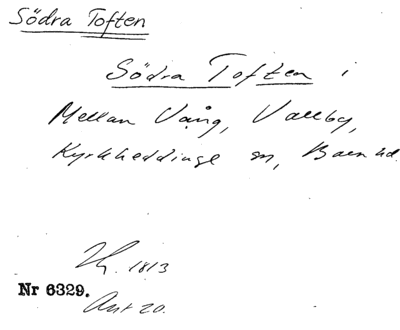 Södra Toften
Södra Toften i
Mellan Vång, Vallby,
Kyrkheddinge sn, Bara hd.
1813
Nr 6329.
Akt 20.